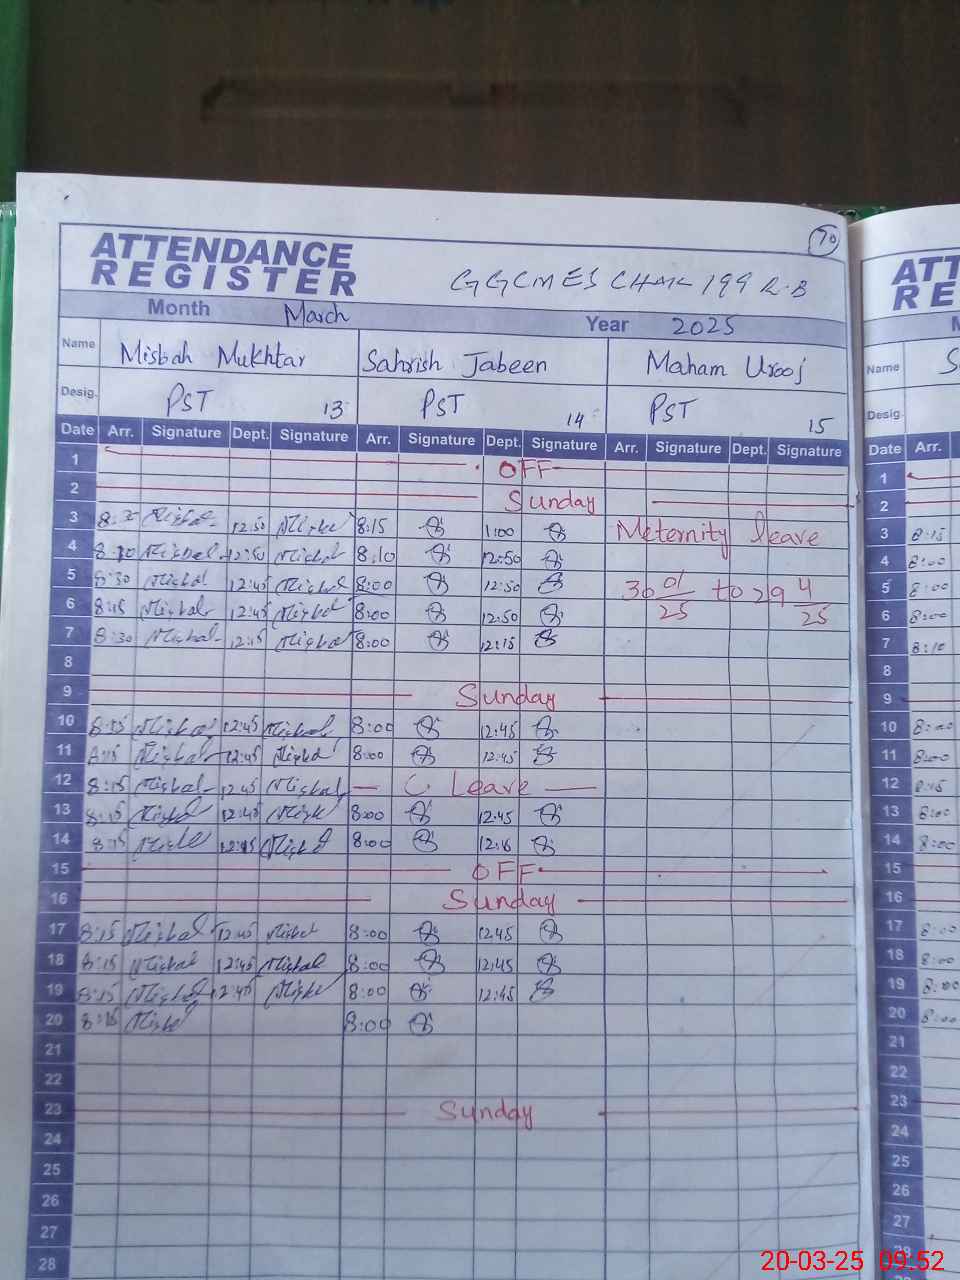 70
ATTENDANCE
REGISTER
GGCMES CHAK 199 R.B
Month March Year 2025
Name Misbah Mukhtar Sahrish Jabeen Maham Urooj
Desig. PST 13 PST 14 PST 15
Date Arr. Signature Dept. Signature Arr. Signature Dept. Signature Arr. Signature Dept. Signature
1 OFF
2 Sunday
3 8:30 12:50 8:15 1:00 Meternity leave
4 8:10 12:50 8:10 12:50
5 8:30 12:45 8:00 12:50 30 01/25 to 29 4/25
6 8:15 12:45 8:00 12:50
7 8:30 12:15 8:00 12:15
8
9 Sunday
10 8:15 12:45 8:00 12:45
11 8:15 12:45 8:00 12:45
12 8:15 12:45 C. Leave
13 8:15 12:45 8:00 12:45
14 8:15 12:45 8:00
15 OFF
16 Sunday
17 8:15 12:45 8:00 12:45
18 8:15 12:45 8:00 12:45
19 8:15 12:45 8:00 12:45
20 8:15 8:00
21
22
23 Sunday
24
25
26
27
28
ATT
RE
Name S
Desig.
Date Arr.
1
2
3 8:15
4 8:00
5 8:00
6 8:00
7 8:10
8
9
10 8:00
11 8:00
12 8:15
13 8:00
14 8:00
15
16
17 8:00
18 8:00
19 8:00
20 8:00
21
22
23
24
25
26
27
28
20-03-25 09:52